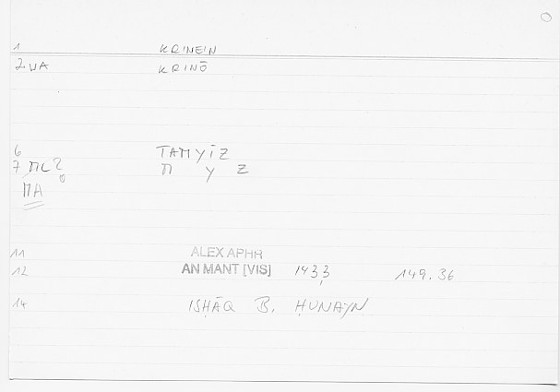 1 KRINEIN
2 WA KRINŌ
6 TAMYĪZ
7 ML? M Y Z
MA
11 ALEX APHR
12 AN MANT [VIS] 143,3 149.36
14 ISḤĀQ B. ḤUNAYN